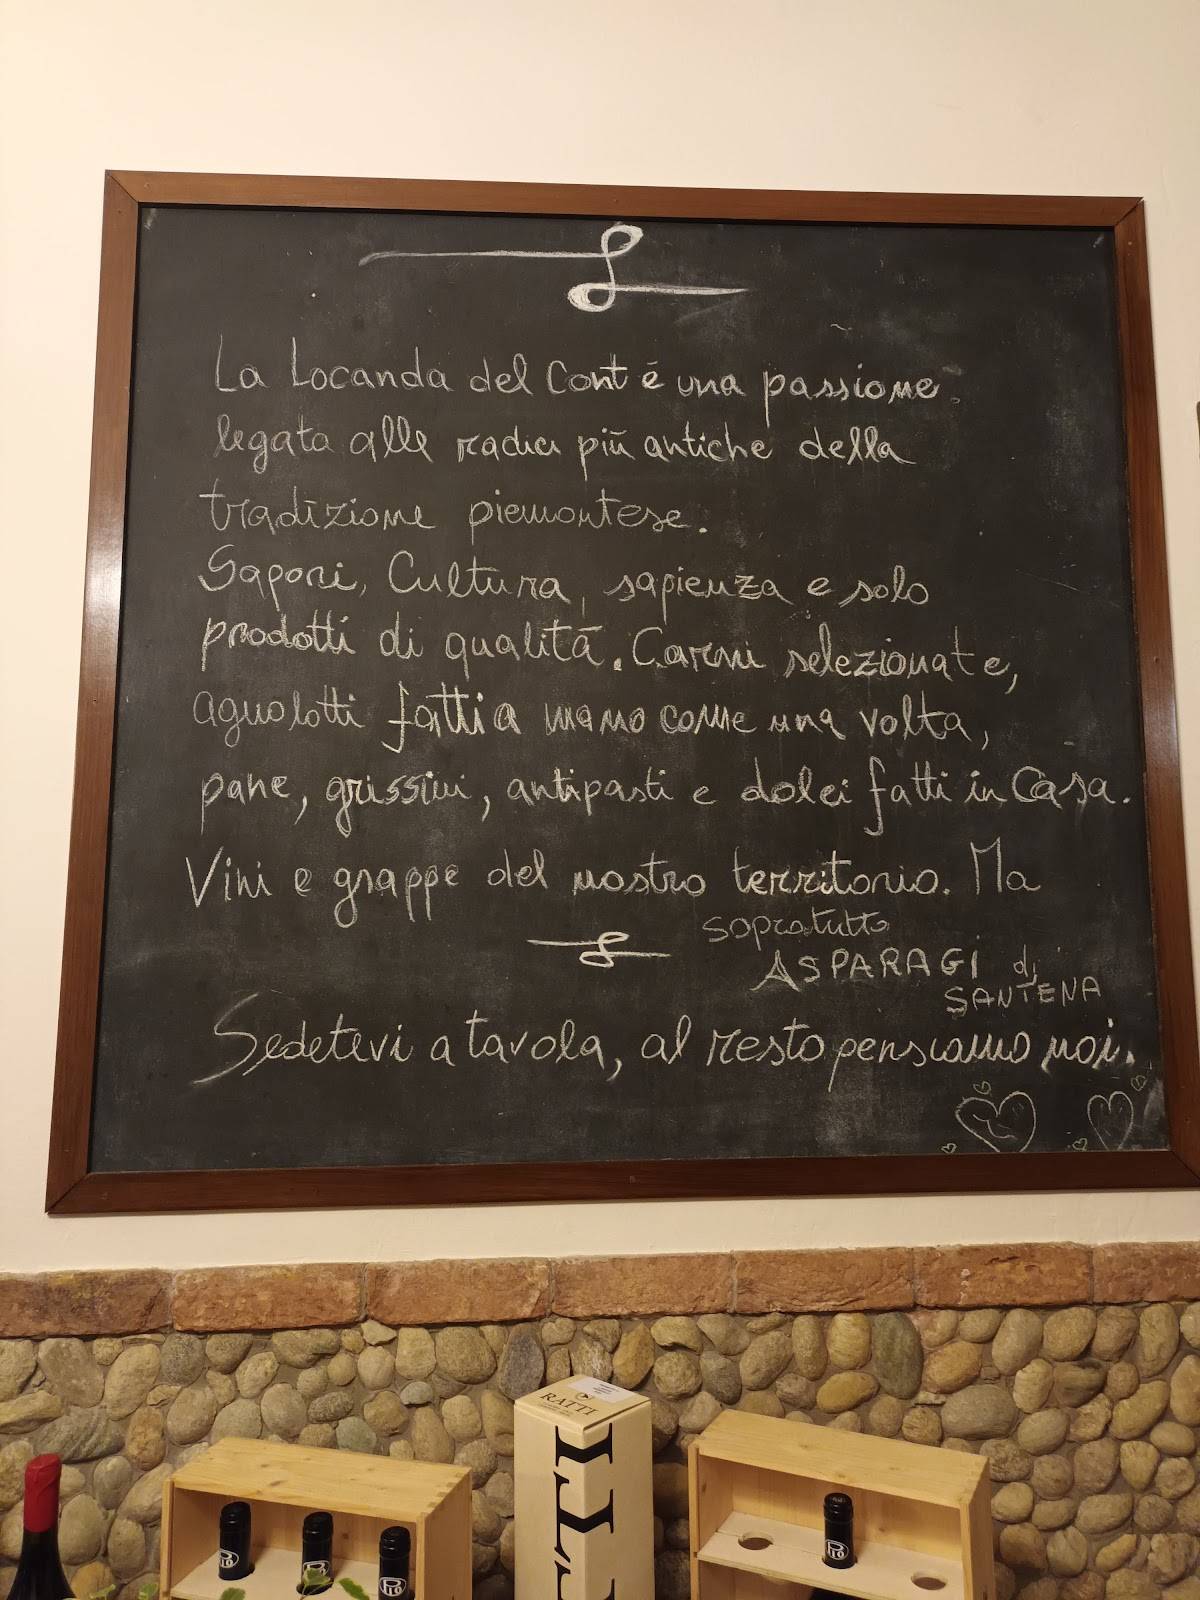 La Locanda del Cont é una passione
legata alle radici più antiche della
tradizione piemontese.
Sapori, Cultura, sapienza e solo
prodotti di qualità. Carni selezionate,
agnolotti fatti a mano come una volta,
pane, grissini, antipasti e dolci fatti in casa.
Vini e grappe del nostro territorio. Ma
sopratutto
ASPARAGI di
SANTENA
Sedetevi a tavola, al resto pensiamo noi.
RATTI